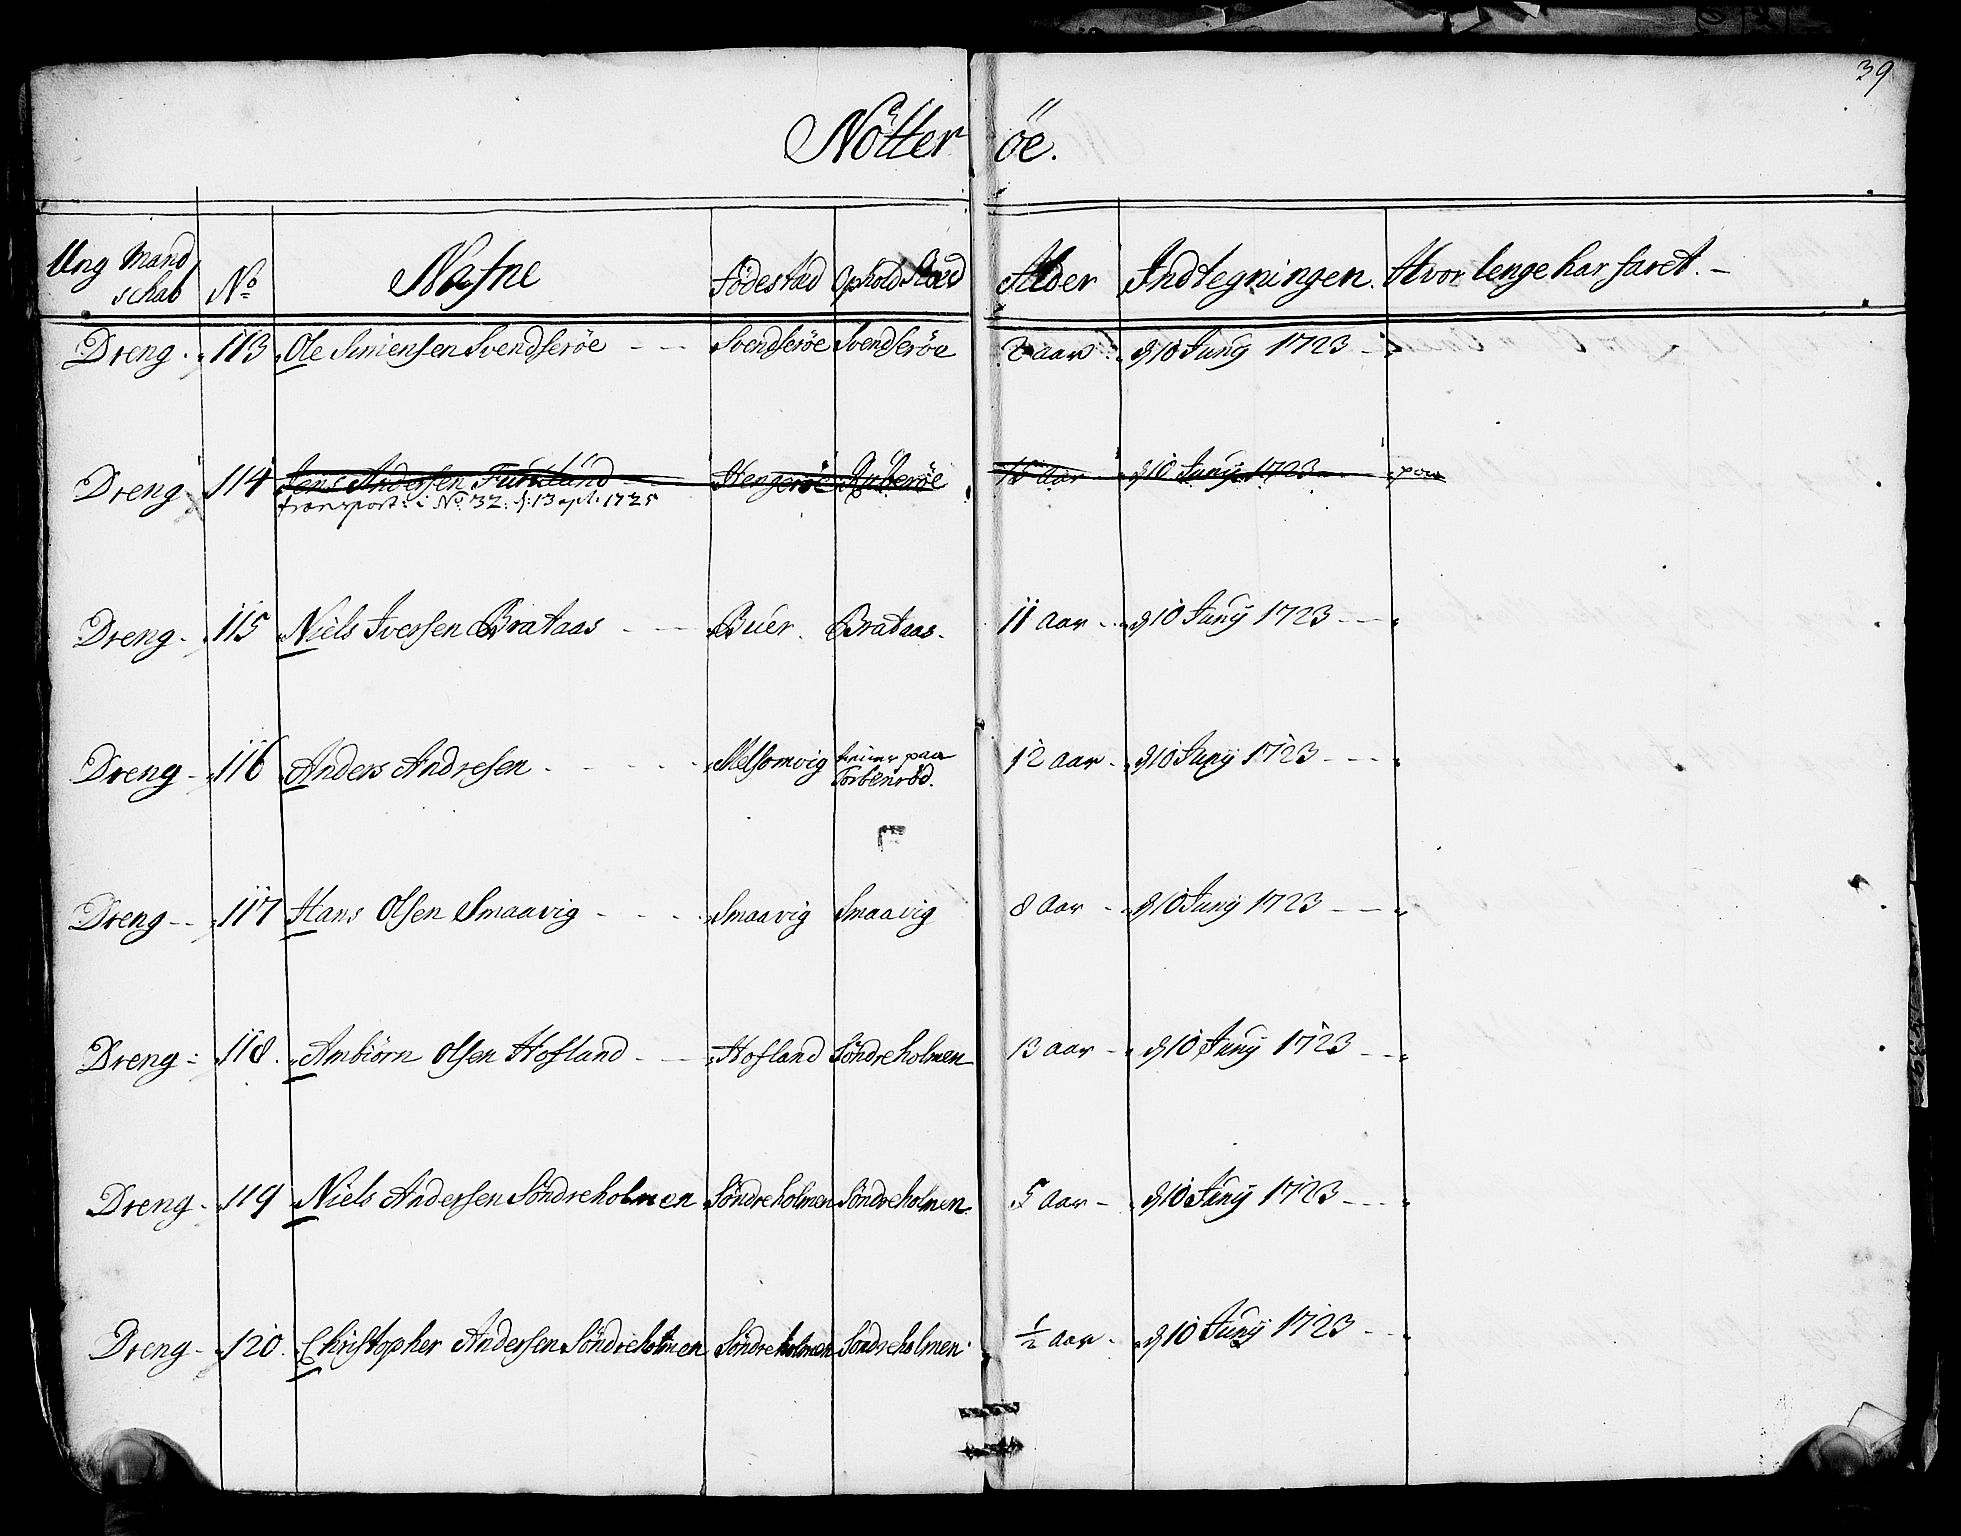 39
Nötter öe.
Ung Mand schab No Nafne Födestæd Ophold Stæd Alder Indtegningen. Hvor lenge har faret. –
Dreng. 113 Ole Simensen Svendseröe Svendseröe Svendseröe 2 aar d 10 Junÿ 1723
Dreng 114 Jens Andersen Hengeröe 15 aar d 10 Junÿ 1723
transport: i No 32. d: 13 apl: 1725
Dreng 115 Niels Iversen Brataas Buer. Brataas. 11 aar d 10 Junÿ 1723
Dreng 116 Anders Andresen Melsomvig tiener paa Torbenröd. 12 aar d 10 Junÿ 1723
Dreng 117 Hans Olsen Smaavig Smaavig Smaavig 8 aar d 10 Junÿ 1723
Dreng 118. Ambiörn Olsen Hofland Hofland Söndreholmen 13 aar d 10 Junÿ 1723
Dreng 119 Niels Andersen Söndreholmen Söndreholmen Söndreholmen. 5 aar d 10 Junÿ 1723
Dreng 120. Christopher Andersen Söndreholmen Söndreholmen Söndreholmen. ½ aar d 10 Junÿ 1723